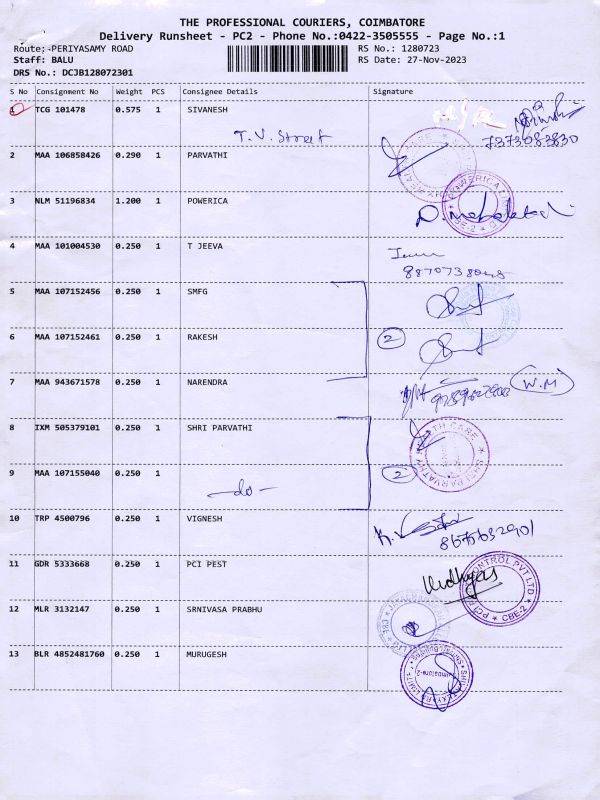 THE PROFESSIONAL COURIERS, COIMBATORE
Delivery Runsheet - PC2 - Phone No.:0422-3505555 - Page No.:1
Route;-PERIYASAMY ROAD RS No.: 1280723
Staff: BALU RS Date: 27-Nov-2023
DRS No.: DCJB128072301
S No Consignment No Weight PCS Consignee Details Signature
1 TCG 101478 0.575 1 SIVANESH
T.V. Street 7373083830
2 MAA 106858426 0.290 1 PARVATHI
3 NLM 51196834 1.200 1 POWERICA
4 MAA 101004530 0.250 1 T JEEVA
5 MAA 107152456 0.250 1 SMFG
6 MAA 107152461 0.250 1 RAKESH 2
7 MAA 943671578 0.250 1 NARENDRA (W.M)
8 IXM 505379101 0.250 1 SHRI PARVATHI
SHRI PARVATHY
9 MAA 107155040 0.250 1 2
-do-
10 TRP 4500796 0.250 1 VIGNESH
11 GDR 5333668 0.250 1 PCI PEST
PCI PEST CONTROL PVT LTD. CBE-2
12 MLR 3132147 0.250 1 SRNIVASA PRABHU
13 BLR 4852481760 0.250 1 MURUGESH